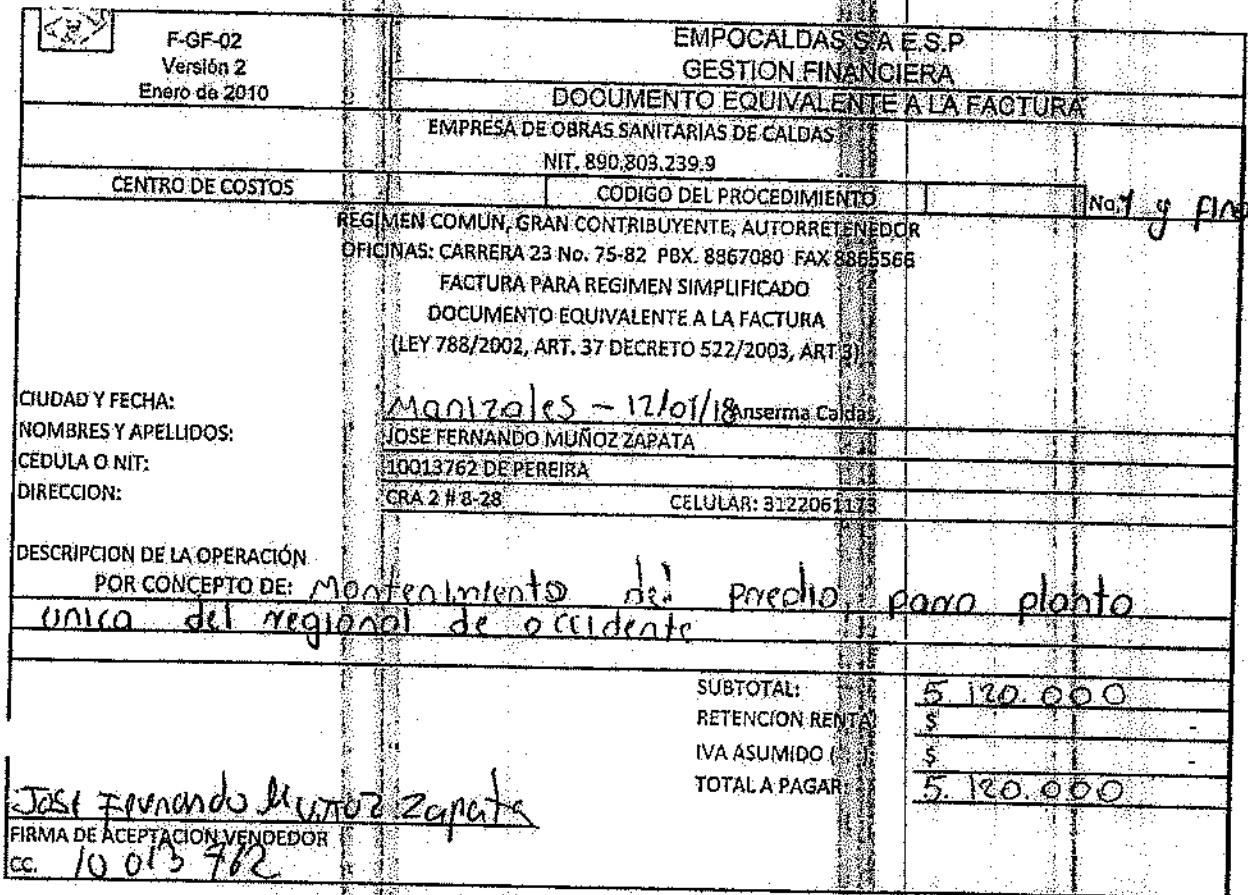 F-GF-02
Versión 2
Enero de 2010
EMPOCALDAS S A E.S.P
GESTION FINANCIERA
DOCUMENTO EQUIVALENTE A LA FACTURA
EMPRESA DE OBRAS SANITARIAS DE CALDAS
NIT. 890.803.239.9
CENTRO DE COSTOS CODIGO DEL PROCEDIMIENTO No. 1 y
REGIMEN COMUN, GRAN CONTRIBUYENTE, AUTORRETENEDOR
OFICINAS: CARRERA 23 No. 75-82 PBX. 8867080 FAX 8865566
FACTURA PARA REGIMEN SIMPLIFICADO
DOCUMENTO EQUIVALENTE A LA FACTURA
(LEY 788/2002, ART. 37 DECRETO 522/2003, ART 3)
CIUDAD Y FECHA: Manizales - 12/01/18 Anserma Caldas
NOMBRES Y APELLIDOS: JOSE FERNANDO MUÑOZ ZAPATA
CEDULA O NIT: 10013762 DE PEREIRA
DIRECCION: CRA 2 # 8-28 CELULAR: 3122061173
DESCRIPCION DE LA OPERACIÓN
POR CONCEPTO DE: Mantenimiento del predio para planta
unica del regional de occidente
SUBTOTAL: 5.120.000
RETENCION RENTA $ -
IVA ASUMIDO ( ) $ -
TOTAL A PAGAR: 5.120.000
Jose Fernando Muñoz Zapata
FIRMA DE ACEPTACION VENDEDOR
CC. 10 013 762